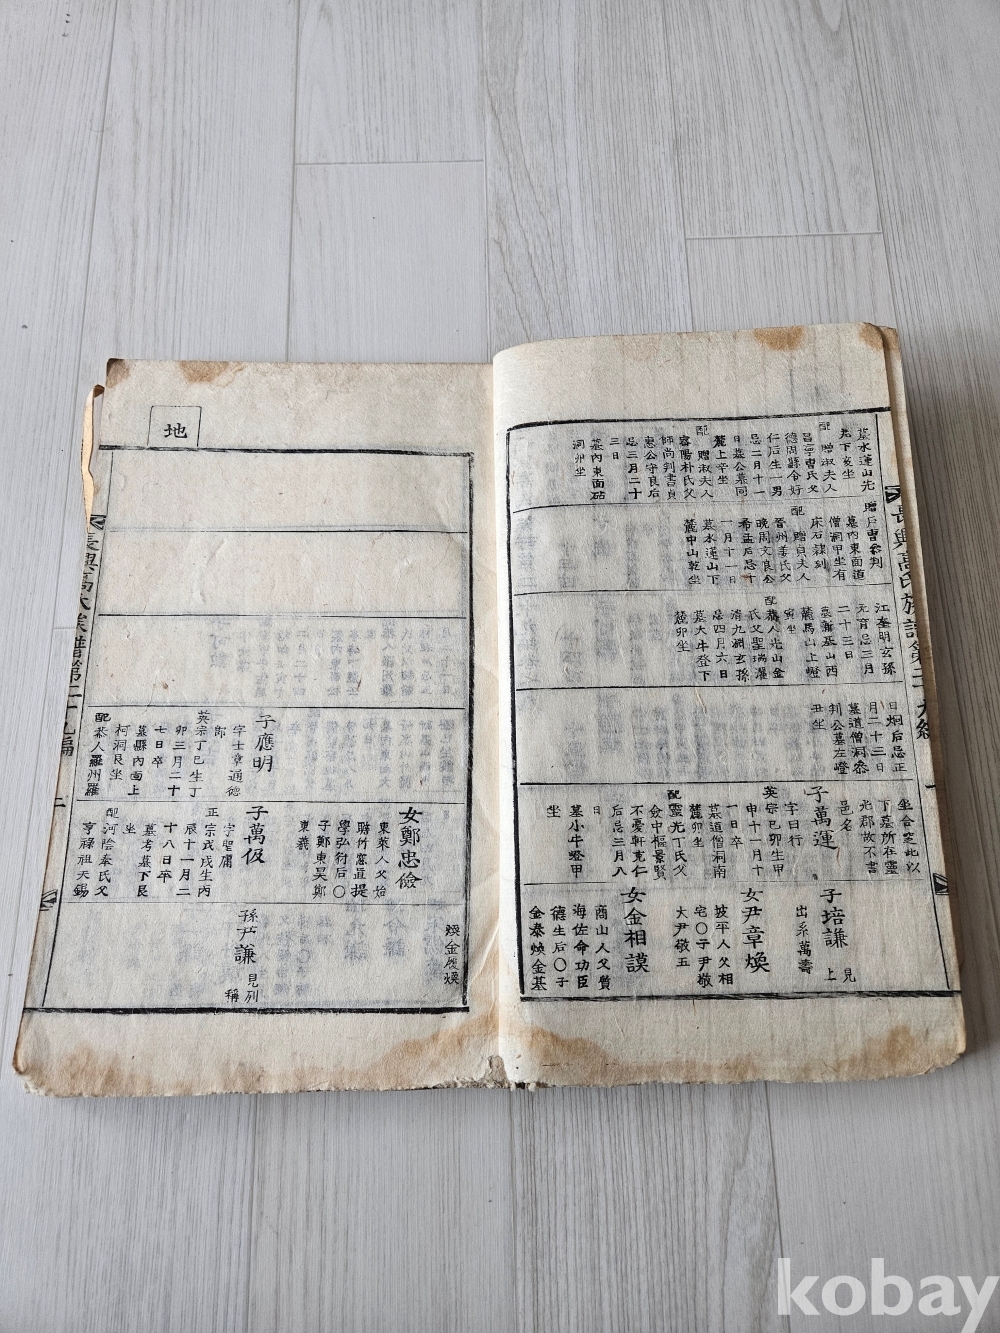 墓水蓮山先
兆下亥坐
配 贈淑夫人
昌寧曺氏父
德周縣令好
仁后生一男
忌二月十一
日墓公墓同
麓上辛坐
配 贈淑夫人
密陽朴氏父
師尚判書貞
惠公守良后
忌三月二十
三日
墓內東面砧
洞卯坐
贈戶曹參判
墓內東面道
僧洞甲坐有
床石謏刻
配 贈貞夫人
晉州姜氏父
晚周文良公
希孟后忌十
一月十一日
墓水蓮山下
麓中山乾坐
江奎明玄孫
元育忌三月
二十三日
墓新基山西
麓馬山上嶝
寅坐
配恭人光山金
氏父聖瑞濯
清九淵玄孫
忌四月六日
墓大牛登下
麓卯坐
日烱后忌正
月二十三日
墓道僧洞參
判公墓左嶝
丑坐
坐合窆此以
下墓所在靈
光郡故不書
邑名
子萬運
字日行
英宗己卯生甲
申十一月十
一日卒
墓道僧洞南
麓卯坐
配靈光丁氏父
儉中樞景賢
不憂軒克仁
后忌三月八
日
墓小牛嶝甲
坐
子培謙 見上
出系萬壽
女尹章煥
坡平人父相
宅〇子尹敬
大尹敬五
女金相謨
商山人父質
海佐命功臣
德生后〇子
金泰煥金基
長興高氏族譜第二十九編
一
地
子應明
字士章通德
郎
英宗丁巳生丁
卯三月二十
七日卒
墓縣內面上
柯洞艮坐
配恭人羅州羅
女鄭忠儉
東萊人父始
聃竹窓直提
學弘衍后〇
子鄭東昊鄭
東羲
子萬伋
字聖庸
正宗戊戌生丙
辰十一月二
十八日卒
墓考墓下艮
坐
配河陰奉氏父
亨祿祖天錫
煥金殷煥
孫尹謙 見列
稱
二
kobay